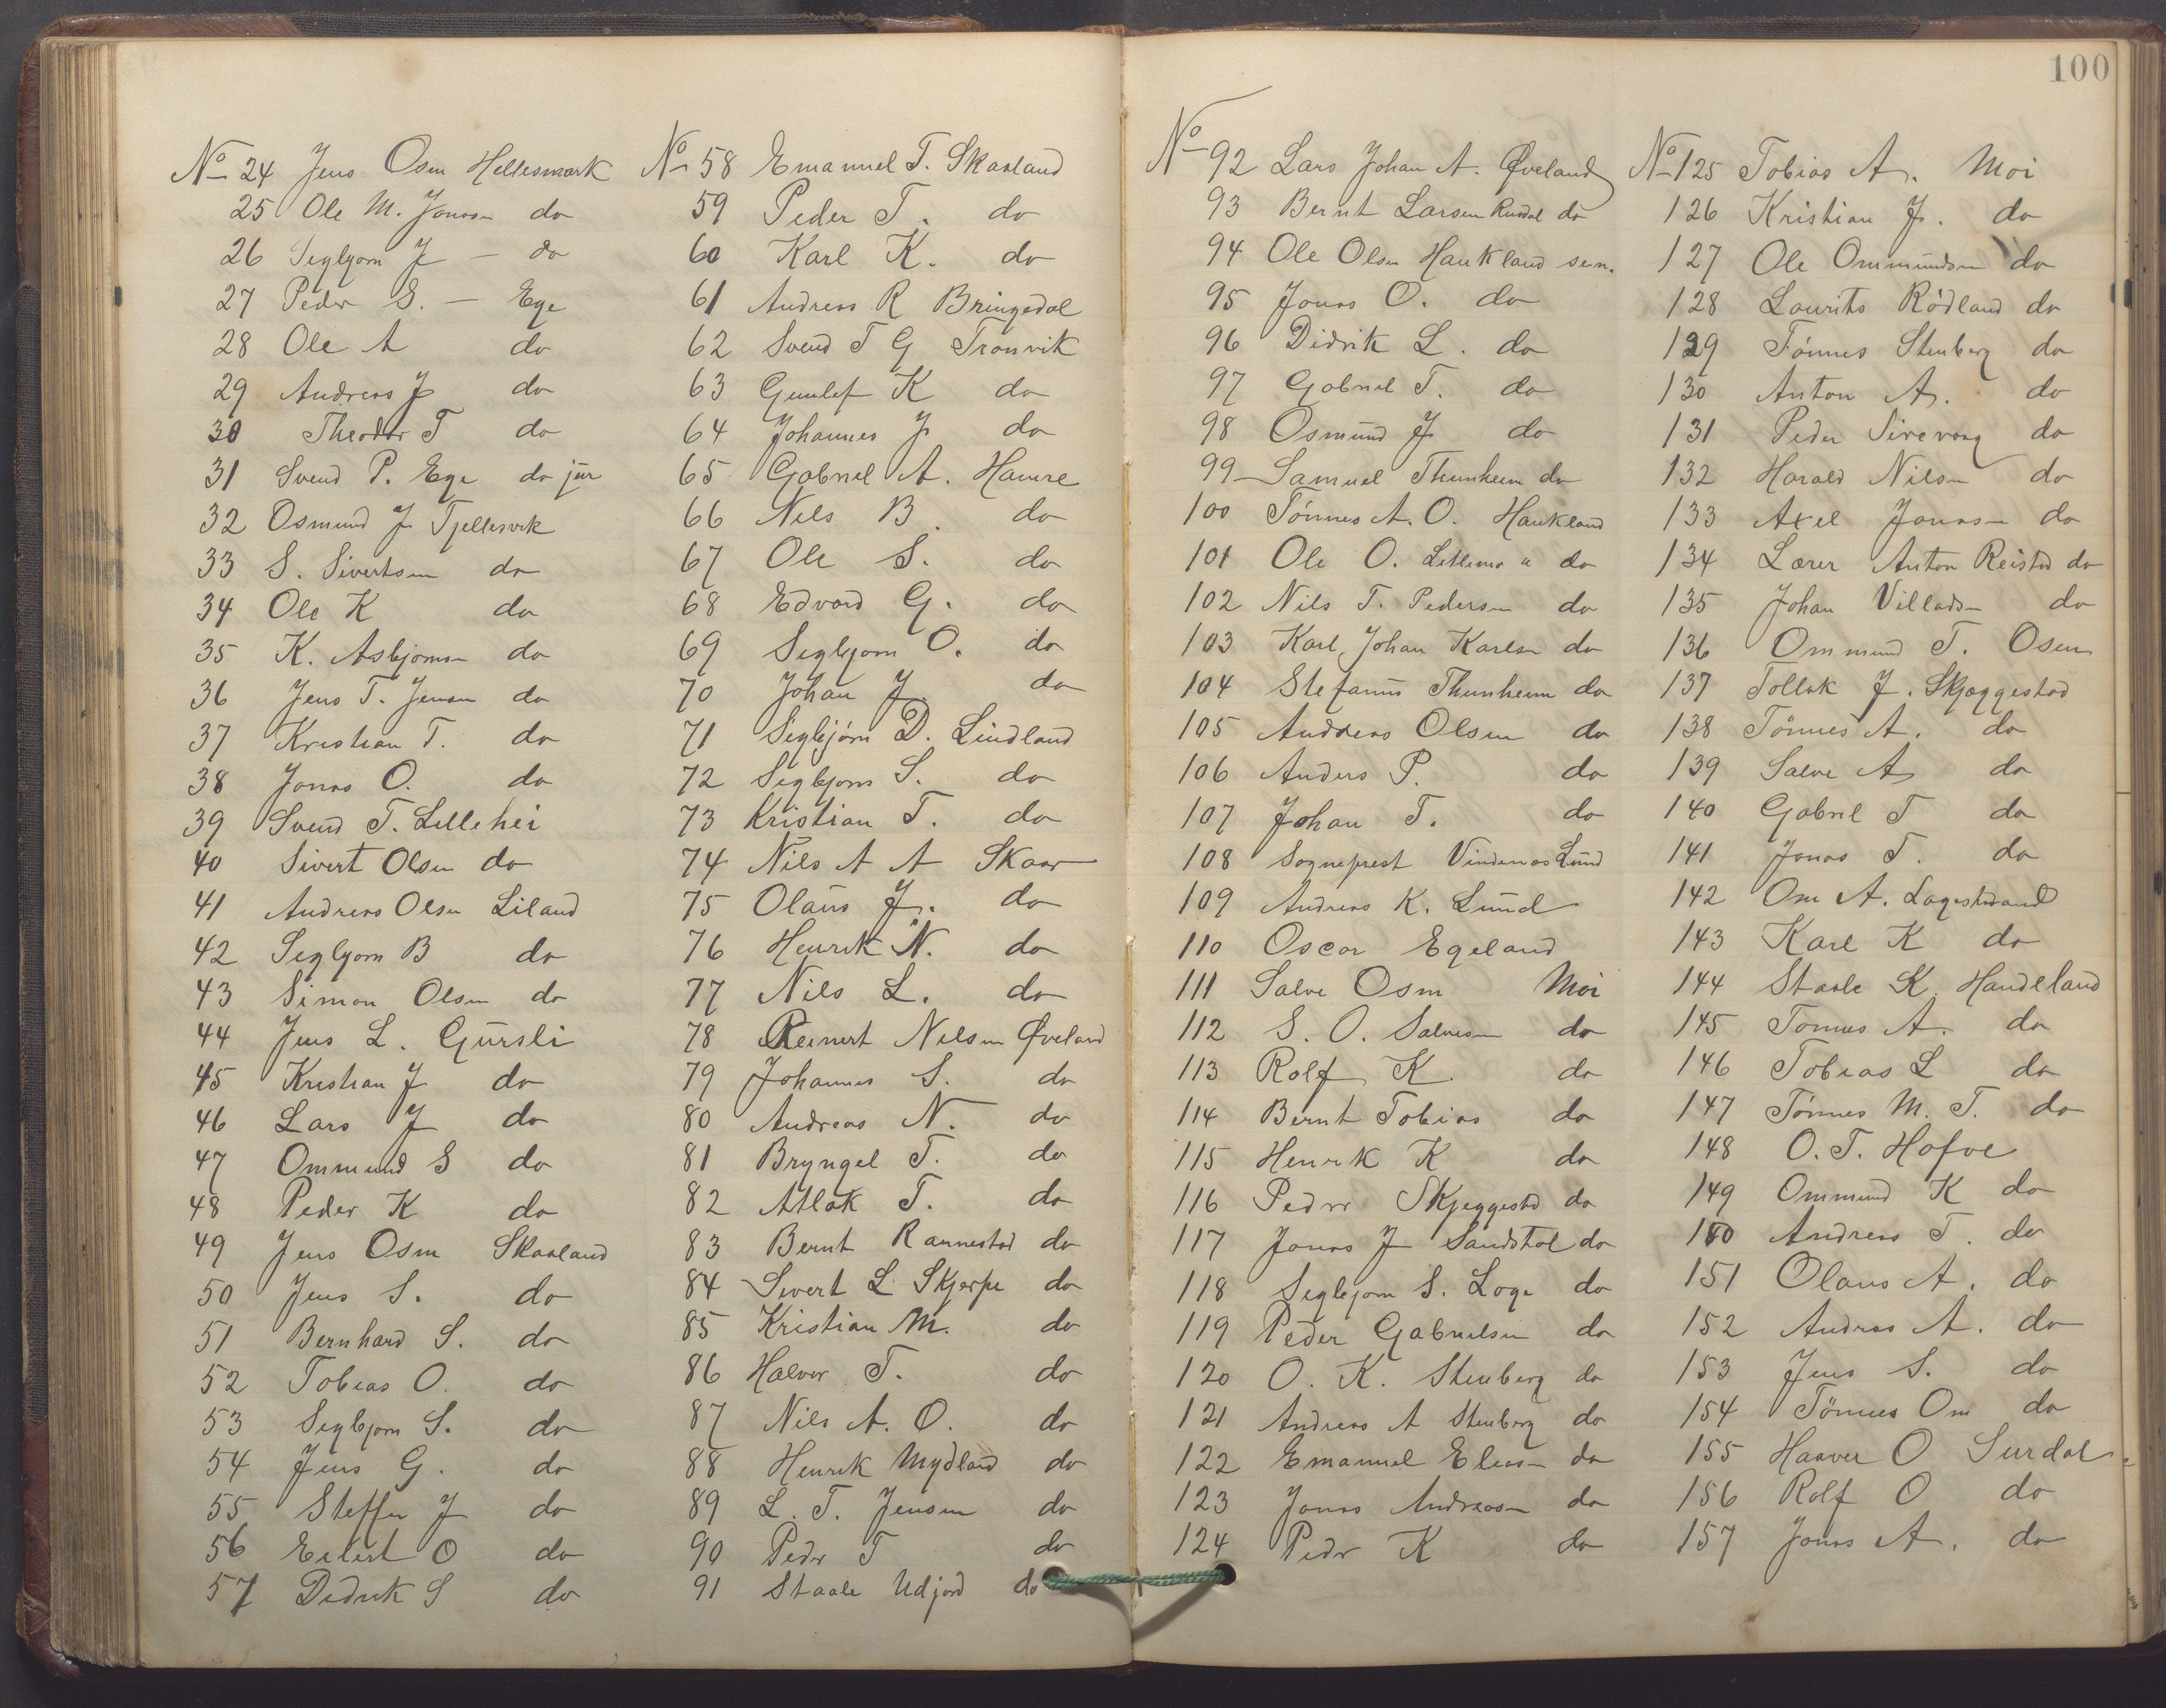 100
No 24 Jens Osm Hellesmark
25 Ole M. Jonasn do
26 Segbjorn J — do
27 Peder S. — Ege
28 Ole A do
29 Andreas J do
30 Theodor T do
31 Svend P. Ege do jur
32 Osmund J Tjellesvik
33 S. Sivertsen do
34 Ole K do
35 K. Asbjornsn do
36 Jens T. Jensen do
37 Kristian T. do
38 Jonas O. do
39 Svend T. Lillehei
40 Sivert Olsen do
41 Andreas Olsn Liland
42 Segbjorn B do
43 Simon Olsen do
44 Jens L. Gursli
45 Kristian J do
46 Lars J do
47 Ommund S do
48 Peder K do
49 Jens Osm Skaaland
50 Jens S. do
51 Bernhard S. do
52 Tobias O. do
53 Segbjorn S. do
54 Jens G. do
55 Steffen J do
56 Eilert O do
57 Didrik S do
No 58 Emanuel T. Skaaland
59 Peder T. do
60 Karl K. do
61 Andreas R Bringedal
62 Svend T G Tronvik
63 Gunlef K do
64 Johannes J do
65 Gabriel A. Hamre
66 Nils B. do
67 Ole S. do
68 Edvard G. do
69 Segbjorn O. do
70 Johan J. do
71 Segbjörn D. Lindland
72 Segbjorn S. do
73 Kristian T. do
74 Nils A A Skaar
75 Olaus J. do
76 Henrik N. do
77 Nils L. do
78 Reinert Nilsen Øveland
79 Johannes S. do
80 Andreas N. do
81 Bryngel T. do
82 Atlak T. do
83 Bernt Rannestad do
84 Sivert L Skjerpe do
85 Kristian M. do
86 Halvor T. do
87 Nils A. O. do
88 Henrik Mydland do
89 L. T. Jensen do
90 Pedr T do
91 Staale Udjord do
No 92 Lars Johan A. Øveland
93 Bernt Larsen Rusdal do
94 Ole Olsn Haukland sen.
95 Jonas O. do
96 Didrik L. do
97 Gabriel T. do
98 Osmund J do
99 Samuel Thunheim do
100 Tönnes A. O. Haukland
101 Ole O. Litlemo " do
102 Nils T. Pedersn do
103 Karl Johan Karlsn do
104 Stefanus Thunheim do
105 Andreas Olsen do
106 Anders P. do
107 Johan T. do
108 Sogneprest Vindenas Lund
109 Andreas K. Lund
110 Oscar Egeland
111 Salve Osm Moi
112 S. O. Salvesn do
113 Rolf K. do
114 Bernt Tobias do
115 Henrik K do
116 Pedr Skjeggestd do
117 Jonas J Sandstøl do
118 Segbjorn S. Loge do
119 Peder Gabrielsen do
120 O. K. Stenberg do
121 Andreas A Stenberg do
122 Emanuel Eliasn do
123 Jonas Andreasn do
124 Pedr K do
No 125 Tobias A. Moi
126 Kristian J. do
127 Ole Ommundsn do
128 Laurits Rödland do
129 Tönnes Stenberg do
130 Anton A. do
131 Peder Sirevaag do
132 Harald Nilsn do
133 Axel Jonasn do
134 Lærer Anton Reistd do
135 Johan Villadsn do
136 Ommund T. Osen
137 Tollak J. Skjæggestad
138 Tönnes A. do
139 Salve A do
140 Gabriel T do
141 Jonas T. do
142 Om A. Lagestrand
143 Karl K do
144 Staale K. Handeland
145 Tonnes A. do
146 Tobias L do
147 Tönnes M. T. do
148 O. T. Hofve
149 Ommund K do
150 Andreas T. do
151 Olaus A. do
152 Andreas A. do
153 Jens S. do
154 Tönnes Om do
155 Haaver O Surdal
156 Rolf O do
157 Jonas A. do